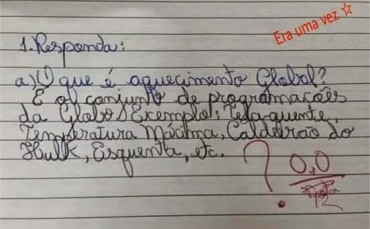 Era uma vez ☆
1. Responda:
a) O que é aquecimento Global?
É o conjunto de programações
da Globo. Exemplo: tela quente,
Temperatura Máxima, Caldeirão do
Hulk, Esquenta, etc.
?
0,0